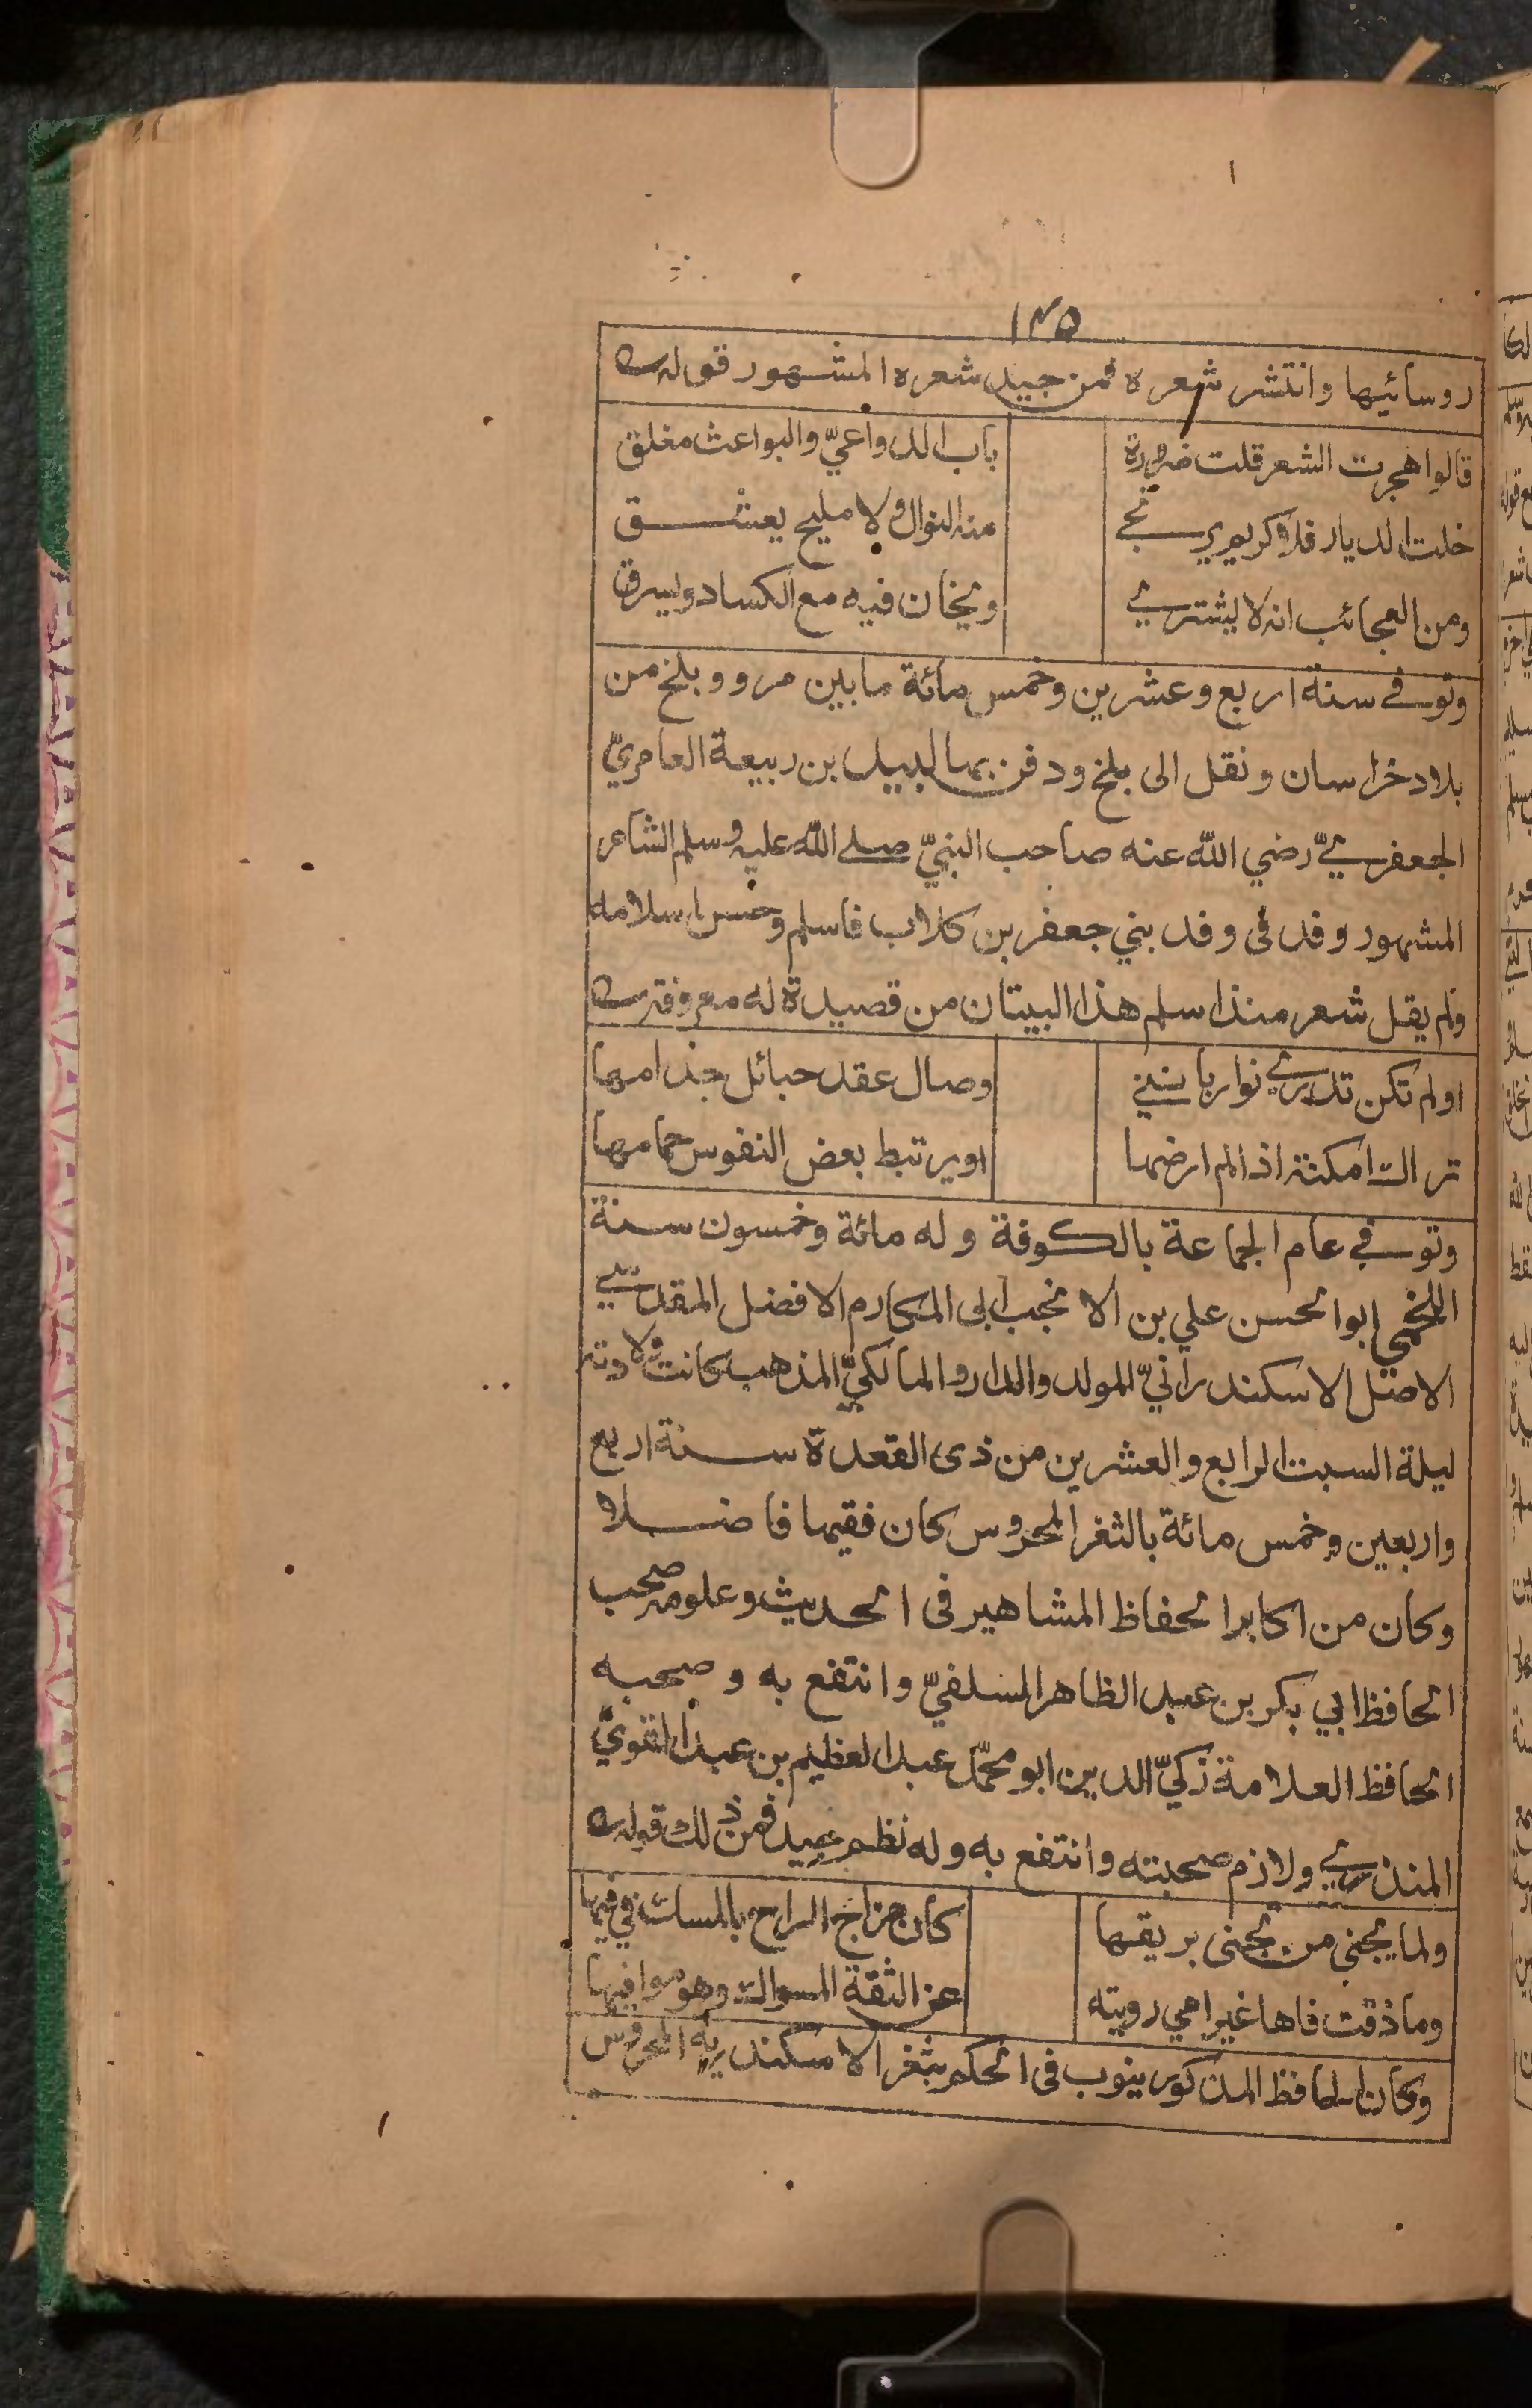 ١٣٥
روسائيها وانتشر شعره فمن جيد شعره المشهور قوله
قالوا هجرت الشعر قلت ضرورة باب الدواعيّ والبواعث مغلق
خلت الديار فلا كريم يرتجي منه النوال ولا مليح يعشق
ومن العجائب انه لا يشتري ويخان فيه مع الكساد ويسرق
وتوفي سنة اربع وعشرين وخمس مائة مابين مرو وبلخ من
بلاد خراسان ونقل الى بلخ ودفن بها لبيد بن ربيعة العامريّ
الجعفريّ رضي الله عنه صاحب النبيّ صلى الله عليه وسلم الشاعر
المشهور وفد فى وفد بني جعفر بن كلاب فاسلم وحسن اسلامه
ولم يقل شعر منذ اسلم هذا البيتان من قصيدة له معروفة
اولم تكن تدري نوار بانني وصال عقد حبائل جذامها
تراك امكنة اذا لم ارضها اويرتبط بعض النفوس حمامها
وتوفي عام الجماعة بالكوفة وله مائة وخمسون سنة
اللخمي ابوالحسن علي بن الانجب ابى المكارم الافضل المقدسي
الاصل الاسكندرانيّ المولد والدار والمالكيّ المذهب كانت ولادته
ليلة السبت الرابع والعشرين من ذى القعدة سنة اربع
واربعين وخمس مائة بالثغر المحروس كان فقيها فاضلا
وكان من اكابر الحفاظ المشاهير فى الحديث وعلومه صحب
الحافظ ابي بكر بن عبد الظاهر السلفيّ وانتفع به وصحبه
الحافظ العلامة زكيّ الدين ابو محمّد عبد العظيم بن عبد القويّ
المنذري ولازم صحبته وانتفع به وله نظم جيد فمن ذلك قوله
ولما يجنى من تجنى بريقها كان مزاج الراح بالمسك في فيها
وما ذقت فاها غير اهي رويته عن الثقة المسواك وهو موافيها
وكان الحافظ المذكور ينوب فى الحكم بثغر الاسكندريه المحروس